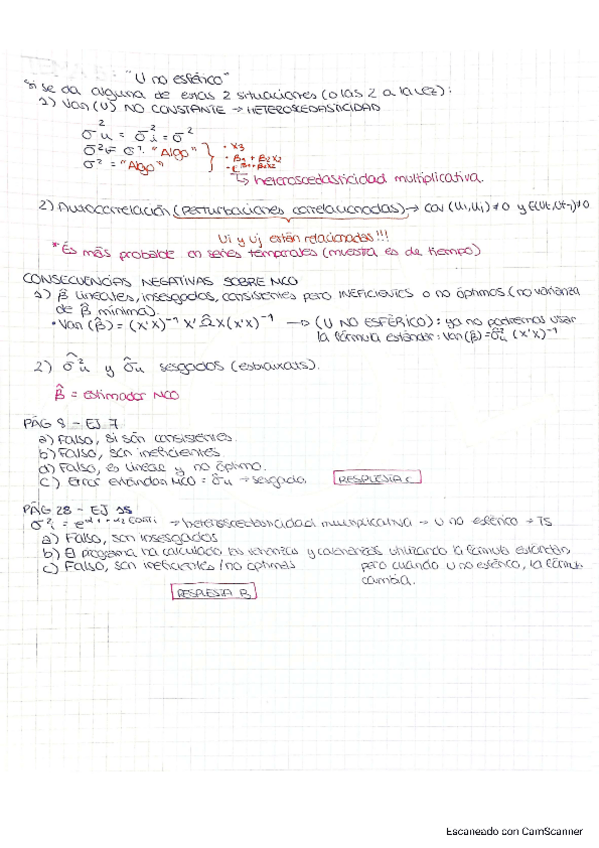 "U no esférico"
Si se da alguna de estas 2 situaciones (o las 2 a la vez):
1) Var(U) NO CONSTANTE → HETEROSCEDASTICIDAD
σ²u = σ²i = σ²
σ² = σ² · "Algo"
σ² = "Algo"
• X3
• β1 + β2X2
↳ heteroscedasticidad multiplicativa.
2) Autocorrelación (perturbaciones correlacionadas) → cov (Ui,Uj) ≠ 0 y E(Ut,Ut-1) ≠ 0
Ui y Uj están relacionadas!!!
*Es más probable en series temporales (muestra es de tiempo)
CONSECUENCIAS NEGATIVAS SOBRE MCO
1) β̂ lineales, insesgados, consistentes pero INEFICIENTES o no óptimos (no varianza
de β̂ mínima).
• Var(β̂) = (X'X)⁻¹ X'Ω̂X(X'X)⁻¹ → (U NO ESFÉRICO): ya no podremos usar
la fórmula estándar: Var(β̂) = σ̂²u (X'X)⁻¹
2) σ̂²u y σ̂u sesgados (esbiaixats).
β̂ = estimador MCO
PÁG 8 - EJ 7
a) Falso, si són consistentes.
b) Falso, son ineficientes.
d) Falso, es lineal y no óptimo.
c) Error estándar MCO = σ̂u → sesgado.
RESPUESTA C
PÁG 28 - EJ
→ heteroscedasticidad multiplicativa → U no esférico →
a) Falso, son insesgados
b) El programa ha calculado las varianzas y covarianzas utilizando la fórmula estándar,
pero cuando U no esférico, la fórmula
cambia.
c) Falso, son ineficientes / no óptimos
RESPUESTA B
Escaneado con CamScanner